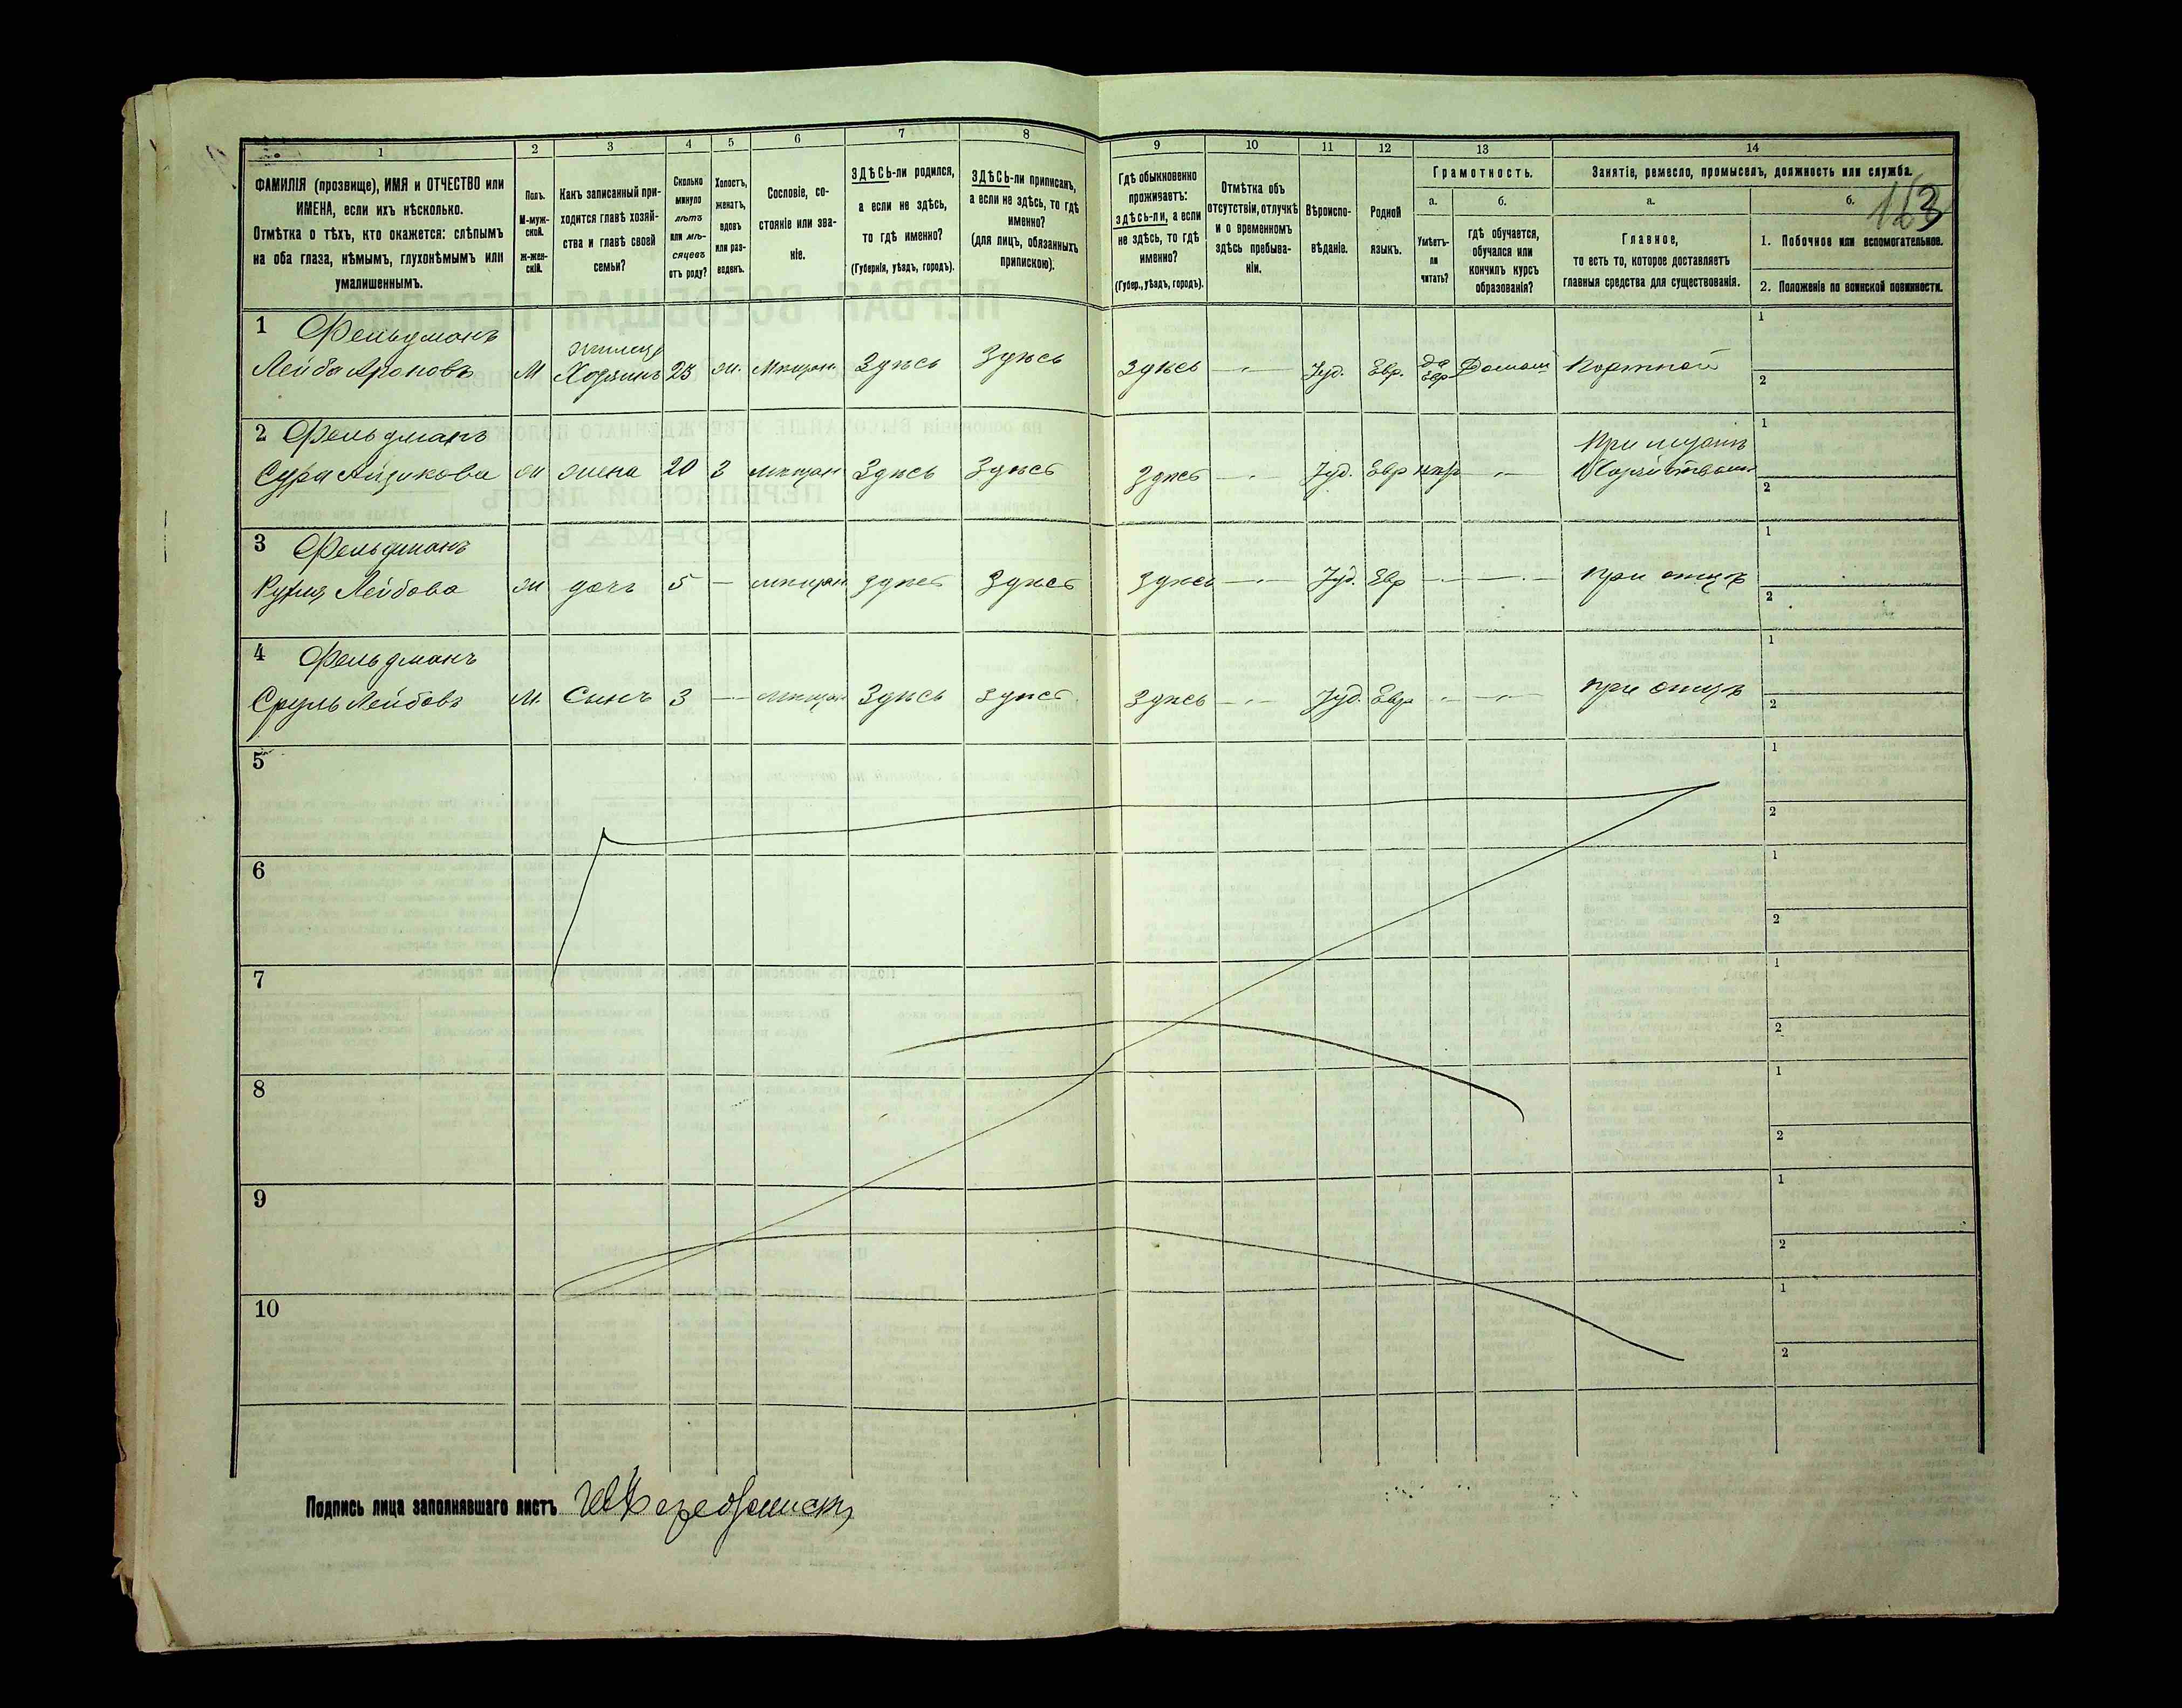 163
1 2 3 4 5 6 7 8 9 10 11 12 13 14
ФАМИЛІЯ (прозвище), ИМЯ и ОТЧЕСТВО или
ИМЕНА, если ихъ нѣсколько.
Отмѣтка о тѣхъ, кто окажется: слѣпымъ
на оба глаза, нѣмымъ, глухонѣмымъ или
умалишеннымъ.
Полъ.
М-муж-
ской.
ж-жен-
скій.
Какъ записанный при-
ходится главѣ хозяй-
ства и главѣ своей
семьи?
Сколько
минуло
лѣтъ
или мѣ-
сяцевъ
отъ роду?
Холостъ,
женатъ,
вдовъ
или раз-
веденъ.
Сословіе, со-
стояніе или зва-
ніе.
ЗДѢСЬ-ли родился,
а если не здѣсь,
то гдѣ именно?
(Губернія, уѣздъ, городъ).
ЗДѢСЬ-ли приписанъ,
а если не здѣсь, то гдѣ
именно?
(для лицъ, обязанныхъ
припискою).
Гдѣ обыкновенно
проживаетъ:
здѣсь-ли, а если
не здѣсь, то гдѣ
именно?
(Губер., уѣздъ, городъ).
Отмѣтка объ
отсутствіи, отлучкѣ
и о временномъ
здѣсь пребыва-
ніи.
Вѣроиспо-
вѣданіе.
Родной
языкъ.
Грамотность.
а.
Умѣетъ-
ли
читать?
б.
гдѣ обучается,
обучался или
кончилъ курсъ
образованія?
Занятіе, ремесло, промыселъ, должность или служба.
а.
Главное,
то есть то, которое доставляетъ
главныя средства для существованія.
б.
1. Побочное или вспомогательное.
2. Положеніе по воинской повинности.
1 Фельдманъ
Лейба Ароновъ М Хозяинъ 23 ж. Мѣщан. Здѣсь Здѣсь Здѣсь — Іуд. Евр. да Евр Домаш Портной
1
2
2 Фельдманъ
Сура Айзикова ж жена 20 з мѣщан Здѣсь Здѣсь Здѣсь — Іуд. Евр — При мужѣ
1
2
3 Фельдманъ
Лейбова ж дочь 5 — мѣщан здѣсь Здѣсь Здѣсь — Іуд. Евр — — при отцѣ
1
2
4 Фельдманъ
Сруль Лейбовъ М. Сынъ 3 — мѣщан Здѣсь здѣсь Здѣсь — Іуд. Евр — — при отцѣ
1
2
5
1
2
6
1
2
7
1
2
8
1
2
9
1
2
10
1
2
Подпись лица заполнявшаго листъ